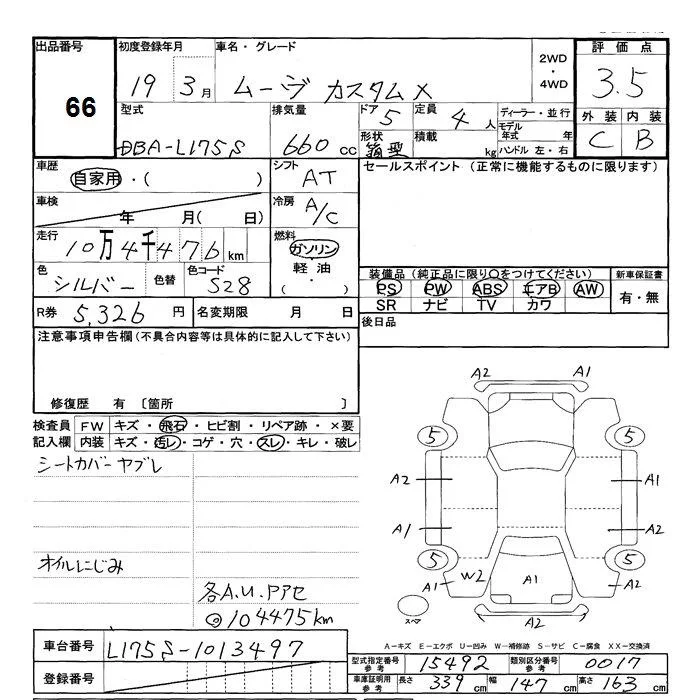 出品番号 初度登録年月 車名・グレード 2WD・4WD 評価点
66 19 3月 ムーヴ カスタムX 3.5
型式 排気量 ドア 5 定員 4人 ディーラー・並行 外装 内装
DBA-L175S 660cc 形状 箱型 積載 kg モデル年式 年 C B
ハンドル 左・右
車歴 自家用・( ) シフト AT セールスポイント (正常に機能するものに限ります)
車検 年 月( 日) 冷房 A/C
走行 10万4千476km 燃料 ガソリン
軽油・( )
色 シルバー 色替 色コード S28
装備品(純正品に限り○をつけてください) 新車保証書
PS PW ABS エアB AW 有・無
SR ナビ TV カワ
R券 5,326円 名変期限 月 日 後日品
注意事項申告欄(不具合内容等は具体的に記入して下さい)
修復歴 有〔箇所 〕
検査員 FW キズ・飛石・ヒビ割・リペア跡・×要
記入欄 内装 キズ・汚レ・コゲ・穴・スレ・キレ・破レ
シートカバーヤブレ
オイルにじみ
各A.U.
104475km
A2 A1
5 5
A2 A1
A1 A2
5 5
A1 W2 A1 A2
スペア A2
A-キズ E-エクボ U-凹み W-補修跡 S-サビ C-腐食 XX-交換済
車台番号 L175S-1013497
型式指定番号 参考 15492 類別区分番号 参考 0017
登録番号
車庫証明用 参考 長さ 339cm 幅 147cm 高さ 163cm